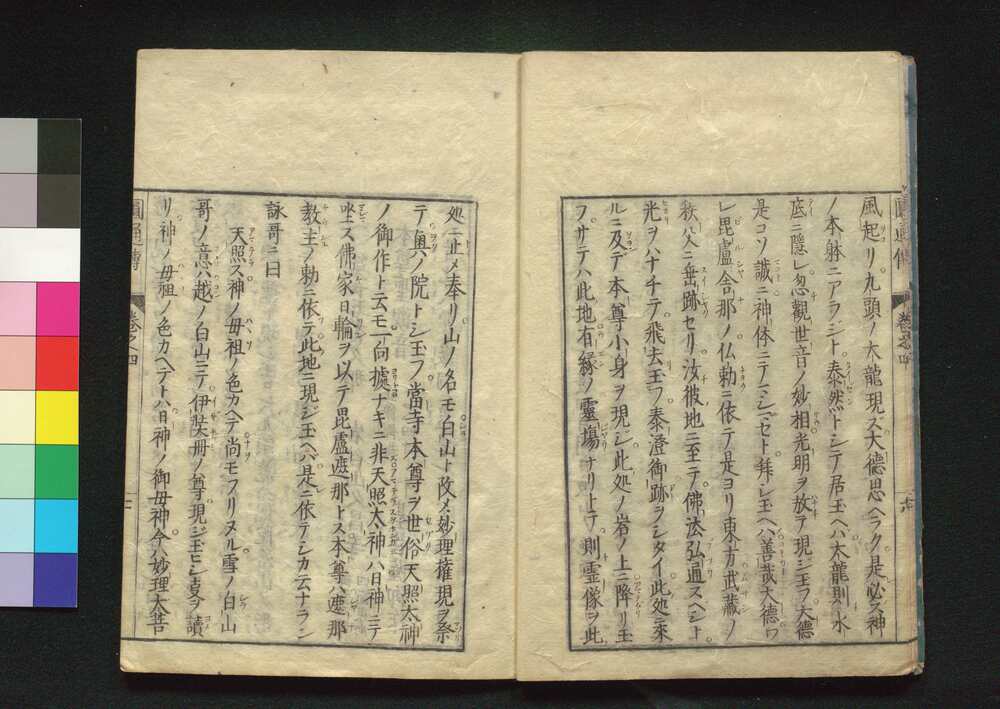 風起リ九頭ノ大龍現ス大德思ヘラク是必ス神
ノ本躰ニアラジト泰然トシテ居玉ヘハ大龍則水
底ニ隱レ忽觀世音ノ妙相光明ヲ放テ現ジ玉フ大德
是コソ誠ニ神体ニテマシマセト拜シ玉ヘハ善哉大德ワ
レ毘盧舍那ノ仏勅ニ依テ是ヨリ東方武藏ノ
秩父ニ垂跡セリ汝彼地ニ至テ佛法弘通スヘシト
光ヲハナチテ飛去玉フ泰澄御跡ヲシタイ此処ニ來
ルニ及デ本尊小身ヲ現シ此処ノ岩ノ上ニ降リ玉
フサテハ此地有縁ノ靈場ナリトテ則霊像ヲ此
処ニ止メ奉リ山ノ名モ白山ト改メ妙理権現ヲ祭
テ奥ノ院トシ玉フ當寺本尊ヲ世俗天照太神
ノ御作ト云モ一向據ナキニ非天照太神ハ日神ニテ
坐ス佛家日輪ヲ以テ毘盧遮那トス本尊ハ遮那
教主ノ勅ニ依テ此地ニ現ジ玉ヘバ是ニ依テシカ云ナラン
詠哥ニ曰
天照ス神ノ母祖ノ色カヘテ尚モフリヌル雪ノ白山
哥ノ意ハ越ノ白山ニテ伊弉冊ノ尊現ジ玉ヒシ㕝ヲ讀
リ神ノ母祖ノ色カヘテトハ日神ノ御母神今ハ妙理大菩
圓通傳
卷之四